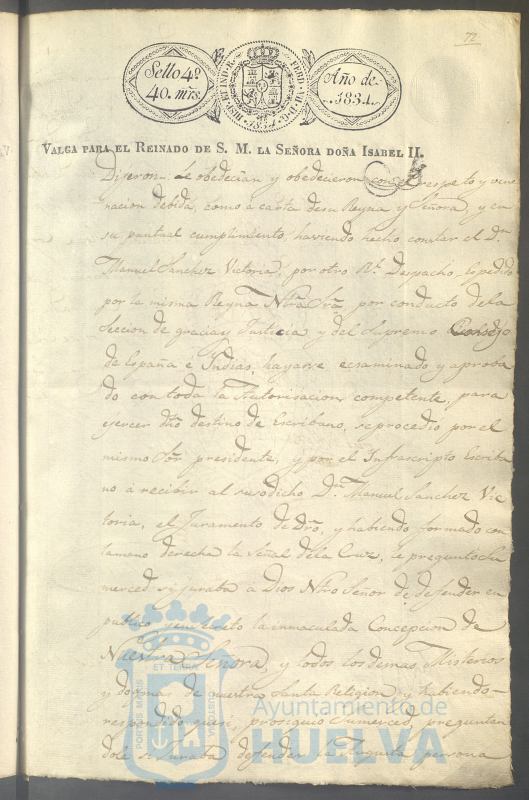 72
Sello 4º
40. mrs.
HISP. ET IND. R. FERD. VII. D. G.
1834
Año de
1834.
VALGA PARA EL REINADO DE S. M. LA SEÑORA DOÑA ISABEL II.
Dijeron: Le obedecian y obedecieron con el respeto y vene
racion debida, como á carta de su Reyna y Señora, y en
su puntual cumplimiento, haviendo hecho constar el Dn
Manuel Sanchez Victoria, por otro Rl. Despacho, espedido
por la misma Reyna Ntra. Sra. por conducto de la
Seccion de gracia y Justicia y del Supremo Consejo
de España é Indias, hayarse ecsaminado y aproba
do con toda la Autorisacion competente, para
ejercer dho destino de Escribano, se procedio por el
mismo Sor. presidente, y por el Infrascripto Escriba
no á recibir al susodicho Dn. Manuel Sanchez Vic
toria, el Juramento de dro, y habiendo formado con
la mano derecha la Señal de la Cruz, le pregunto su
merced si juraba a Dios Ntro Señor de defender en
publico y en secreto la inmaculada Concepcion de
Nuestra Señora, y todos los demas Misterios
y dogmas de nuestra Santa Religion, y habiendo
respondido que si, prosiguio Sumerced, preguntan
dole si Juraba defender la Augusta persona
PORTUS MARIS ET TERRÆ CUSTODIA
Ayuntamiento de
HUELVA